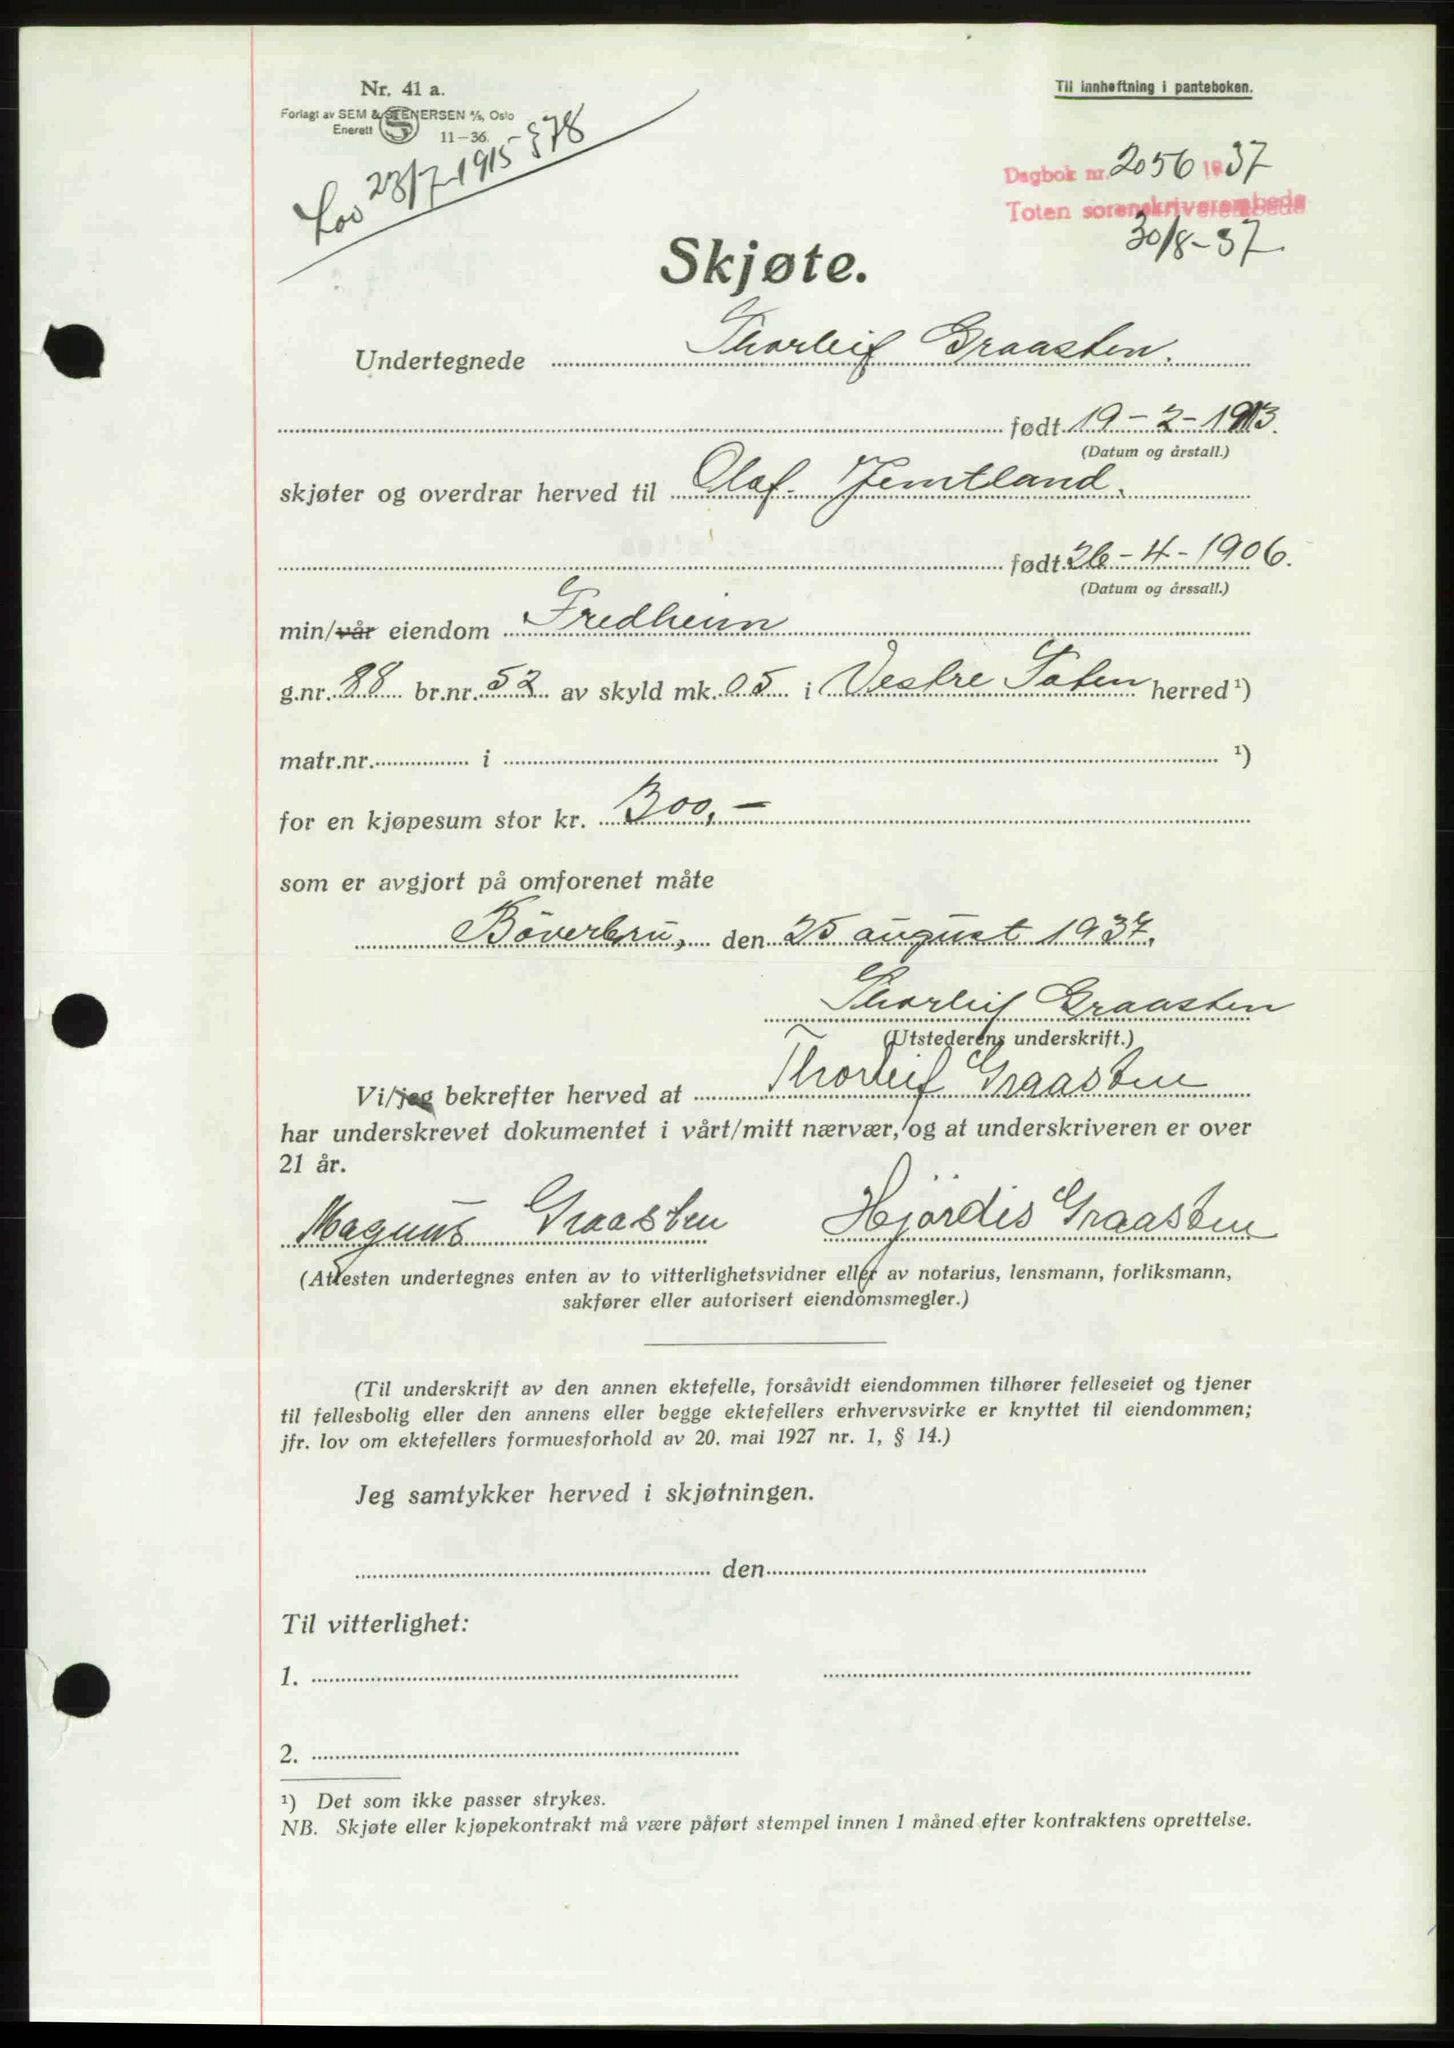 Nr. 41 a.
Forlagt av SEM & STENERSEN A/S, Oslo
Enerett 11-36.
Lov 23/7-1915 § 78
Til innheftning i panteboken.
Dagbok nr. 2056 1937
Toten sorenskriverembede
30/8-37
Skjøte.
Undertegnede Thorleif Graasten.
født 19-2-1913.
(Datum og årstall.)
skjøter og overdrar herved til Olaf Jemtland.
født 26-4-1906.
(Datum og årssall.)
min/vår eiendom Fredheim
g.nr. 88 br.nr. 52 av skyld mk. 05 i Vestre Toten herred ¹)
matr.nr. i ¹)
for en kjøpesum stor kr. 300,-
som er avgjort på omforenet måte
Böverbru, den 25 august 1937.
Thorleif Graasten
(Utstederens underskrift.)
Vi/jeg bekrefter herved at Thorleif Graasten
har underskrevet dokumentet i vårt/mitt nærvær, og at underskriveren er over
21 år.
Magnus Graasten Hjördis Graasten
(Attesten undertegnes enten av to vitterlighetsvidner eller av notarius, lensmann, forliksmann,
sakfører eller autorisert eiendomsmegler.)
(Til underskrift av den annen ektefelle, forsåvidt eiendommen tilhører felleseiet og tjener
til fellesbolig eller den annens eller begge ektefellers erhvervsvirke er knyttet til eiendommen;
jfr. lov om ektefellers formuesforhold av 20. mai 1927 nr. 1, § 14.)
Jeg samtykker herved i skjøtningen.
den
Til vitterlighet:
1.
2.
¹) Det som ikke passer strykes.
NB. Skjøte eller kjøpekontrakt må være påført stempel innen 1 måned efter kontraktens oprettelse.